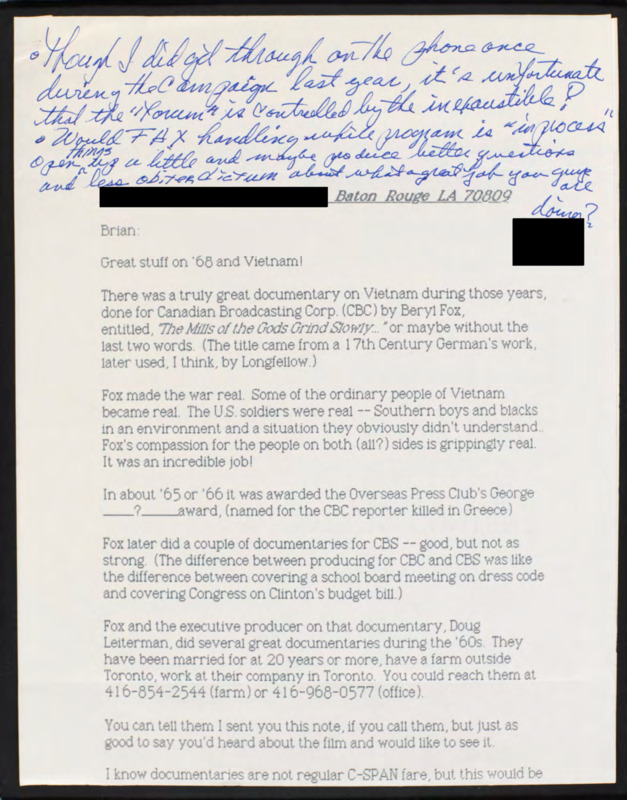 • Though I did get through on the phone once
during the campaign last year, it's unfortunate
that the "Forum" is controlled by the inexhaustible!
• Would FAX handling while program is "in process"
open things up a little and maybe produce better questions
and "less obiter dictum about what a great job you guys are
doing?
Baton Rouge LA 70809
Brian:
Great stuff on '68 and Vietnam!
There was a truly great documentary on Vietnam during those years,
done for Canadian Broadcasting Corp. (CBC) by Beryl Fox,
entitled, "The Mills of the Gods Grind Slowly..." or maybe without the
last two words. (The title came from a 17th Century German's work,
later used, I think, by Longfellow.)
Fox made the war real. Some of the ordinary people of Vietnam
became real. The U.S. soldiers were real -- Southern boys and blacks
in an environment and a situation they obviously didn't understand.
Fox's compassion for the people on both (all?) sides is grippingly real.
It was an incredible job!
In about '65 or '66 it was awarded the Overseas Press Club's George
____?_____award, (named for the CBC reporter killed in Greece)
Fox later did a couple of documentaries for CBS -- good, but not as
strong. (The difference between producing for CBC and CBS was like
the difference between covering a school board meeting on dress code
and covering Congress on Clinton's budget bill.)
Fox and the executive producer on that documentary, Doug
Leiterman, did several great documentaries during the '60s. They
have been married for at 20 years or more, have a farm outside
Toronto, work at their company in Toronto. You could reach them at
416-854-2544 (farm) or 416-968-0577 (office).
You can tell them I sent you this note, if you call them, but just as
good to say you'd heard about the film and would like to see it.
I know documentaries are not regular C-SPAN fare, but this would be